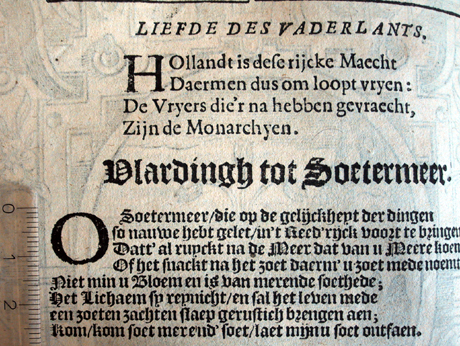 LIEFDE DES VADERLANTS.
HOllandt is dese rijcke Maecht
Daermen dus om loopt vryen:
De Vryers die'r na hebben gevraecht,
Zijn de Monarchyen.
Vlardingh tot Soetermeer.
O Soetermeer/die op de gelijckheyt der dingen
so nauwe hebt gelet/in't Reed'rijck voort te bringen
Datt' al ruyckt na de Meer dat van u Meere koen
Of het smackt na het zoet daerm' u zoet mede noemt
Niet min u Bloem en is van merende soethede;
Het Lichaem sy repnicht/en sal het leven mede
een zoeten zachten slaep gerustich brengen aen;
kom/kom soet merend' soet/laet mijn u soet ontfaen.
0
1
2